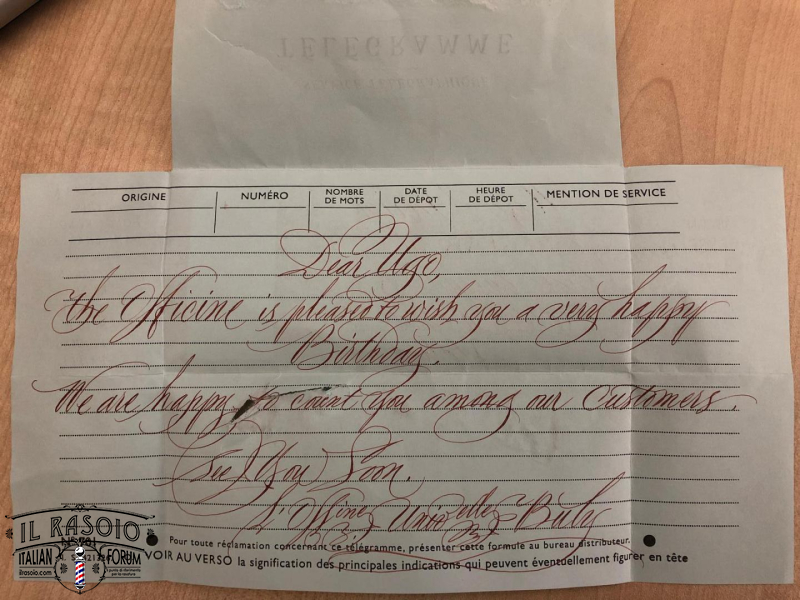 TÉLÉGRAMME
ORIGINE NUMÉRO NOMBRE DE MOTS DATE DE DÉPÔT HEURE DE DÉPÔT MENTION DE SERVICE
Dear Ugo,
the Officine is pleased to wish you a very happy
Birthday.
We are happy to count you among our customers.
See You Soon.
L'Officine Universelle Buly
Pour toute réclamation concernant ce télégramme, présenter cette formule au bureau distributeur.
VOIR AU VERSO la signification des principales indications qui peuvent éventuellement figurer en tête
IL RASOIO
ITALIAN FORUM
ilrasoio.com